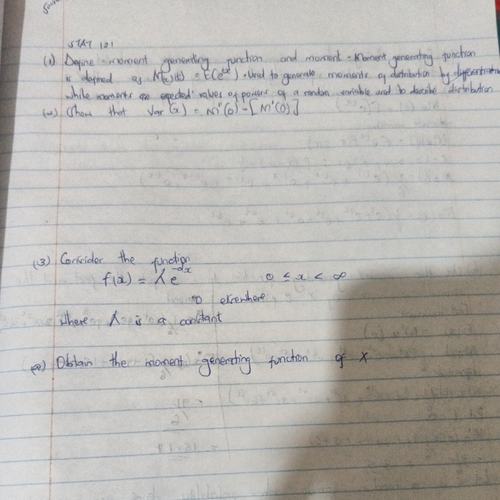 STAT 121
(1) Define moment generating function and moment - Moment generating function
is defined as Mx(t) = E(e^tx) - Used to generate moments of distribution by differentiation
while moments are expected values of powers of a random variable used to describe distribution
(2) Show that Var(X) = M''(0) - [M'(0)]
(3) Consider the function
f(x) = λe^-λx 0 ≤ x < ∞
0 elsewhere
where λ is a constant
(a) Obtain the moment generating function of X